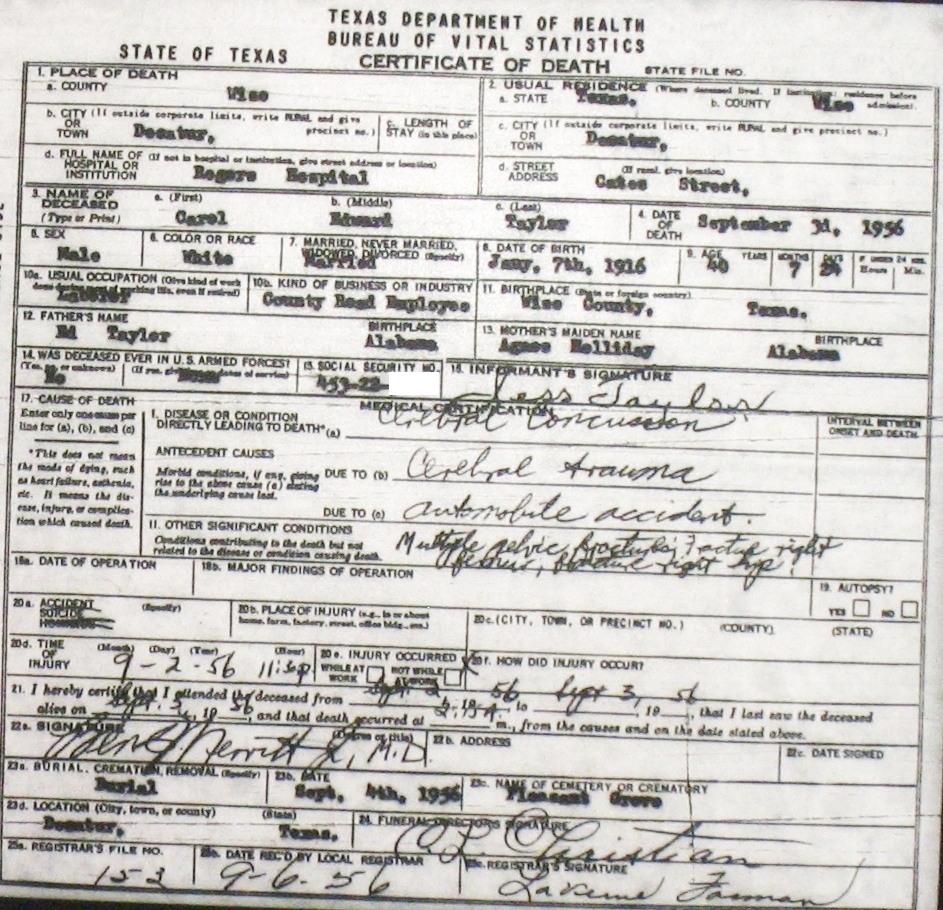 TEXAS DEPARTMENT OF HEALTH
BUREAU OF VITAL STATISTICS
STATE OF TEXAS CERTIFICATE OF DEATH STATE FILE NO.
1. PLACE OF DEATH
a. COUNTY Wise
2. USUAL RESIDENCE (Where deceased lived. If institution: residence before admission).
a. STATE Texas, b. COUNTY Wise
b. CITY (If outside corporate limits, write RURAL and give precinct no.) OR TOWN Decatur,
c. LENGTH OF STAY (in this place)
c. CITY (If outside corporate limits, write RURAL and give precinct no.) OR TOWN Decatur,
d. FULL NAME OF HOSPITAL OR INSTITUTION (If not in hospital or institution, give street address or location) Rogers Hospital
d. STREET ADDRESS (If rural, give location) Gates Street,
3. NAME OF DECEASED (Type or Print)
a. (First) Carol b. (Middle) Edward c. (Last) Taylor
4. DATE OF DEATH September 3d, 1956
5. SEX Male
6. COLOR OR RACE White
7. MARRIED, NEVER MARRIED, WIDOWED, DIVORCED (Specify) Married
8. DATE OF BIRTH Jany, 7th, 1916
9. AGE 40 YEARS MONTHS 7 DAYS IF UNDER 24 HRS. Hours Min.
10a. USUAL OCCUPATION (Give kind of work done during most of working life, even if retired) Laborer
10b. KIND OF BUSINESS OR INDUSTRY County Road Employee
11. BIRTHPLACE (State or foreign country) Wise County, Texas.
12. FATHER'S NAME Ed Taylor BIRTHPLACE Alabama
13. MOTHER'S MAIDEN NAME Holliday BIRTHPLACE Alabama
14. WAS DECEASED EVER IN U.S. ARMED FORCES? (Yes, no or unknown) No (If yes, give dates of service) None
15. SOCIAL SECURITY NO. 453-22-
16. INFORMANT'S SIGNATURE Jess Taylor
17. CAUSE OF DEATH
Enter only one cause per line for (a), (b), and (c)
*This does not mean the mode of dying, such as heart failure, asthenia, etc. It means the disease, injury, or complication which caused death.
MEDICAL CERTIFICATION
INTERVAL BETWEEN ONSET AND DEATH
I. DISEASE OR CONDITION DIRECTLY LEADING TO DEATH* (a) Cerebral Concussion
ANTECEDENT CAUSES
Morbid conditions, if any, giving rise to the above cause (a) stating the underlying cause last.
DUE TO (b) Cerebral trauma
DUE TO (c) automobile accident.
II. OTHER SIGNIFICANT CONDITIONS
Conditions contributing to the death but not related to the disease or condition causing death.
Multiple pelvic fractures, Fracture right
femur, fracture right hip.
18a. DATE OF OPERATION
18b. MAJOR FINDINGS OF OPERATION
19. AUTOPSY? YES NO
20a. ACCIDENT SUICIDE HOMICIDE (Specify)
20b. PLACE OF INJURY (e.g., in or about home, farm, factory, street, office bldg., etc.)
20c. (CITY, TOWN, OR PRECINCT NO.) (COUNTY) (STATE)
20d. TIME OF INJURY (Month) (Day) (Year) (Hour) 9-2-56
20e. INJURY OCCURRED WHILE AT WORK NOT WHILE AT WORK X
20f. HOW DID INJURY OCCUR?
21. I hereby certify that I attended the deceased from Sept 2 56 to Sept 3, 56, 19, that I last saw the deceased
alive on Sept. 3, 19 56, and that death occurred at m., from the causes and on the date stated above.
22a. SIGNATURE (Degree or title) Merritt Jr, M.D.
22b. ADDRESS
22c. DATE SIGNED
23a. BURIAL, CREMATION, REMOVAL (Specify) Burial
23b. DATE Sept, 4th, 1956
23c. NAME OF CEMETERY OR CREMATORY Pleasant Grove
23d. LOCATION (City, town, or county) (State) Decatur, Texas.
24. FUNERAL DIRECTOR'S SIGNATURE Christian
25a. REGISTRAR'S FILE NO. 153
25b. DATE REC'D BY LOCAL REGISTRAR 9-6-56
25c. REGISTRAR'S SIGNATURE